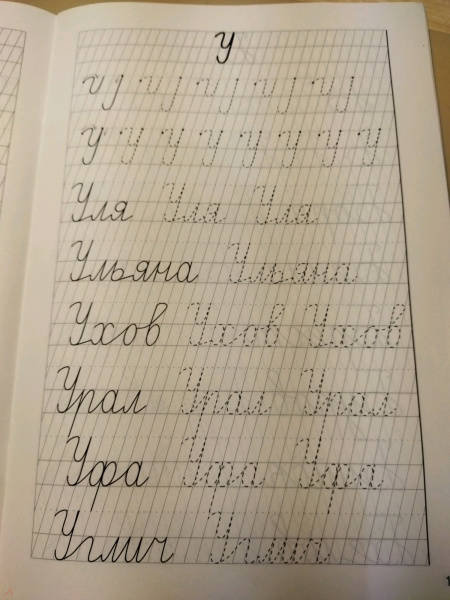 У
У У У У У У У У
Уля Уля Уля
Ульяна Ульяна
Ухов Ухов Ухов
Урал Урал Урал
Уфа Уфа Уфа
Углич Углич